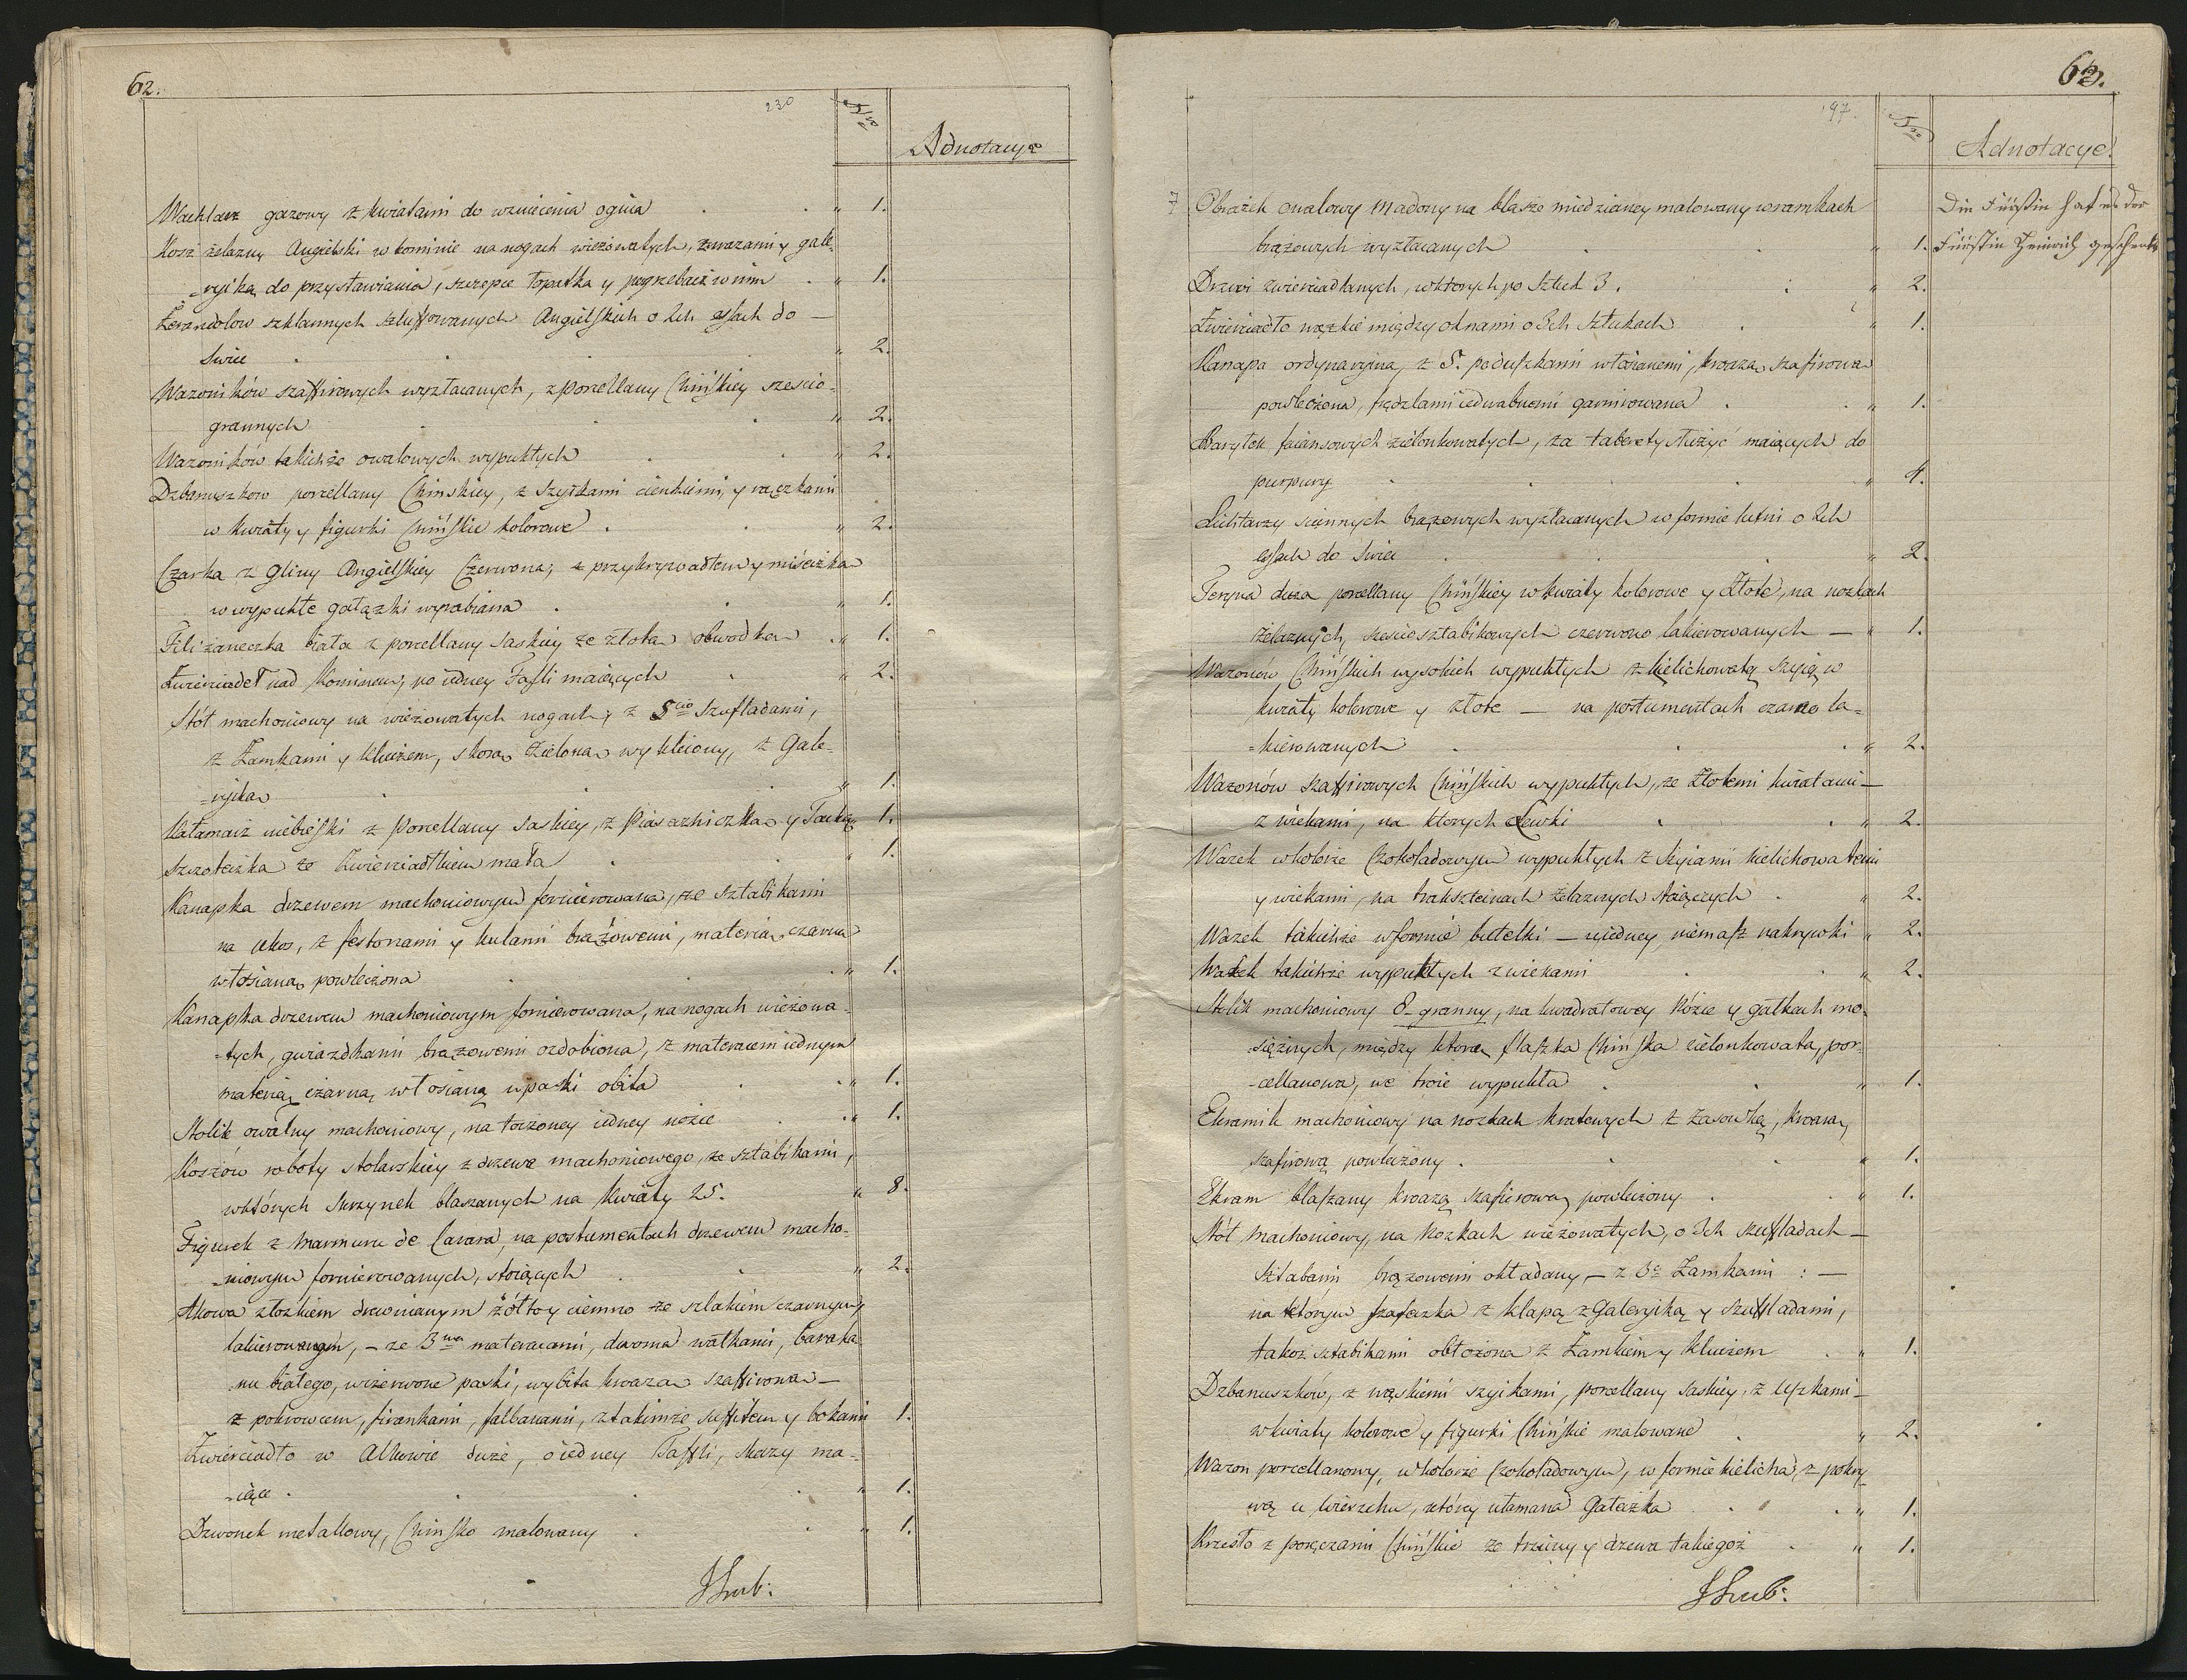 62.
230
Nro
Adnotacye
Wachlarz gazowy z kwiatami do wzniecenia ognia „ 1.
Kosz żelazny Angielski w kominie na nogach wieżowatych, z wazami y gale-
-ryiką do przystawiania, szczypce łopatka y pogrzebacz w nim „ 1.
Żerandolow szklannych szluffowanych Angielskich o 2ch essach do —
Swiec „ 2.
Wazoników szaffirowych wyzłacanych, z porcellany Chińskiey szescio-
grannych „ 2.
Wazoników takichże owalowych wypukłych „ 2.
Dzbanuszkow porcellany Chinskiey, z szyikami cienkiemi, y rączkami
w kwiaty y figurki Chińskie kolorowe „ 2.
Czarka z gliny Angielskiey Czerwona, z przykrywadłem y miseczką
w wypukłe gałązki wyrabiana „ 1.
Filiżaneczka biała z porcellany Saskiey ze złotą obwodką „ 1.
Zwierciadeł nad Kominem, po iedney Taffli maiących „ 2.
Stół machoniowy na wieżowatych nogach, z 5cio Szufladami,
z Zamkami y Kluczem, skorą Zieloną wykleiony, z Gale-
-ryiką „ 1.
Kałamarz niebieski z Porcellany Saskiey, z Piaseczniczką y Tacką 1.
Szczoteczka ze Zwierciadłkiem mała „ 1.
Kanapka drzewem machoniowym fornierowana, ze sztabikami
na ukos, z festonami y kulami brązowemi, materią czarną
włosianą powleczona „ 1.
Kanapka drzewem machoniowym fornierowana, na nogach wieżowa-
-tych, gwiazdkami brązowemi ozdobiona, z materacem iednym
materią czarną włosianą w paski obita „ 1.
Stolik owalny machoniowy, na toczoney iedney nożie „ 1.
Koszów roboty stolarskiey z drzewa machoniowego, ze sztabikami,
w których skrzynek blaszanych na kwiaty 25. „ 8.
Figurek z Marmuru de Carara, na postumentach drzewem macho-
-niowym fornierowanych, stoiących „ 2.
Alkowa z łożkiem drewnianym żółto y ciemno ze szlakiem czarnym
lakierowanym, — ze 3ma materacami, dwoma wałkami, baraka
nu białego, w czerwone paski, wybita kroazą szaffirową —
z pokrowcem, firankami, falbanami, z takimże suffitem y bokami 1.
Zwierciadło w Alkowie duże, o iedney Taffli, skazy ma-
-iące „ 1.
Dzwonek metallowy, Chińsko malowany „ 1.
63.
197.
Nro
Adnotacye
7 Obrazek owalowy Madony na blasze miedzianey malowany w ramkach
brązowych wyzłacanych „ 1.
Die Fürstin hat es der
Fürstin Heinrich geschenkt
Drzwi zwierciadlanych, w ktorych po Sztuk 3. „ 2.
Zwierciadło wązkie między oknami o 3ch Sztukach „ 1.
Kanapa ordynaryina, z 5. poduszkami włosianemi, kroazą szafirową
powleczona, frędzlami iedwabnemi garnirowana „ 1.
Baryłek faiansowych zielonkowatych, za taborety służyć maiących do
purpury „ 4.
Lichtarzy sciennych brązowych wyzłacanych w formie lutni o 2ch
essach do Swiec „ 2.
Teryna duża porcellany Chińskiey w kwiaty kolorowe y złote, na nożkach
żelaznych, szesciosztabikowych czerwono lakierowanych — „ 1.
Wazonów Chińskich wysokich wypukłych z kielichowatą szyią w
kwiaty kolorowe y złote — na postumentach czarno la-
-kierowanych „ 2.
Wazonów szaffirowych Chińskich wypukłych, ze Złotemi kwiatami —
z wiekami, na ktorych Lewki „ 2.
Wazek w kolorze Czokoladowym wypukłych z szyiami kielichowatemi
y wiekami, na trakszteinach żelaznych stoiących „ 2.
Wazek takichże w formie butelki — u iedney niemasz nakrywki „ 2.
Wazek takichże wypukłych z wiekami „ 2.
Stolik machoniowy 8-granny, na kwadratowey Nózie y gałkach mo-
-siężnych, między którą flaszka Chińska zielonkowata, por-
-cellanowa, we troie wypukła „ 1.
Ekranik machoniowy na nożkach kratowych z Zasówką, kroazą
szafirową powleczony „ 1.
Ekran blaszany kroazą szafirową powleczony „ 1.
Stół, machoniowy, na Nożkach wieżowatych, o 3ch szuffladach —
Sztabami brązowemi okładany — z 3a Zamkami : —
na którym szafeczka z klapą z Galeryiką y szuffladami,
takoż sztabikami obłożona z Zamkiem y Kluczem „ 1.
Dzbanuszków, z wąskiemi szyikami, porcellany Saskiey, z Uszkami —
w kwiaty kolorowe y figurki Chińskie malowane „ 2.
Wazon porcellanowy, w kolorze Czokoladowym, w formie kielicha, z pokry
wą u wierzchu, którey ułamana Gałeczka „ 1.
Krzesło z poręczami Chińskie ze trzciny y drzewa takiegoż „ 1.